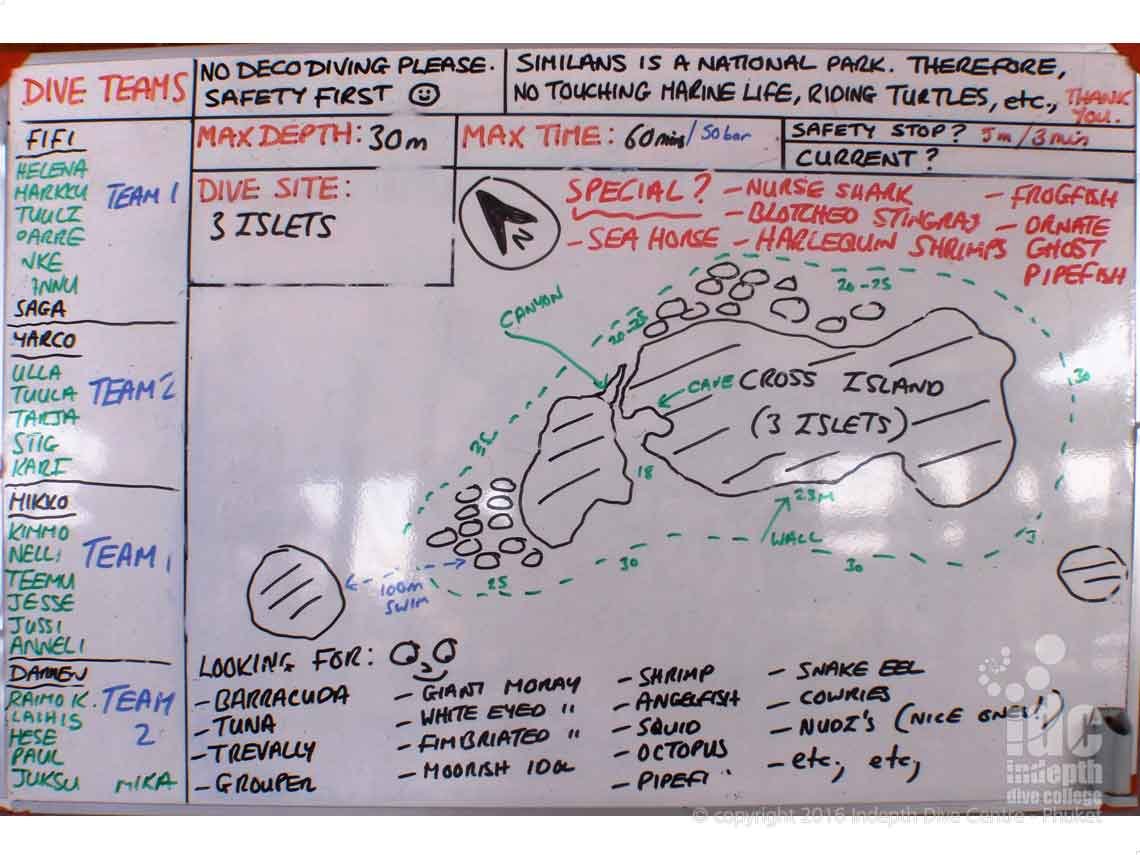 DIVE TEAMS
FIFI
HELENA
MARKKU
TUULI
TEAM 1
SAGA
MARCO
ULLA
TUULA
TARJA
STIG
KARI
TEAM 2
MIKKO
KIMMO
NELLI
TEEMU
JESSE
JUSSI
ANNELI
TEAM 1
DARREN
RAIMO K.
HESE
PAUL
JUKSU MIKA
TEAM 2
NO DECO DIVING PLEASE.
SAFETY FIRST
SIMILANS IS A NATIONAL PARK. THEREFORE,
NO TOUCHING MARINE LIFE, RIDING TURTLES, etc., THANK YOU.
MAX DEPTH: 30m
MAX TIME: 60mins/50bar
SAFETY STOP? 5m/3min
CURRENT?
DIVE SITE:
3 ISLETS
N
SPECIAL? - NURSE SHARK - FROGFISH
- BLOTCHED STINGRAY - ORNATE
- SEA HORSE - HARLEQUIN SHRIMPS GHOST
PIPEFISH
20-25
CANYON
20-25
CAVE
CROSS ISLAND
(3 ISLETS)
30
18
23M
WALL
30
30
25
100M
SWIM
LOOKING FOR:
- BARRACUDA
- TUNA
- TREVALLY
- GROUPER
- GIANT MORAY
- WHITE EYED "
- FIMBRIATED "
- MOORISH IDOL
- SHRIMP
- ANGELFISH
- SQUID
- OCTOPUS
- PIPEFI "
- SNAKE EEL
- COWRIES
- NUDI'S (NICE ONES!)
- etc, etc,
idc
indepth
dive college
© copyright 2016 Indepth Dive Centre - Phuket